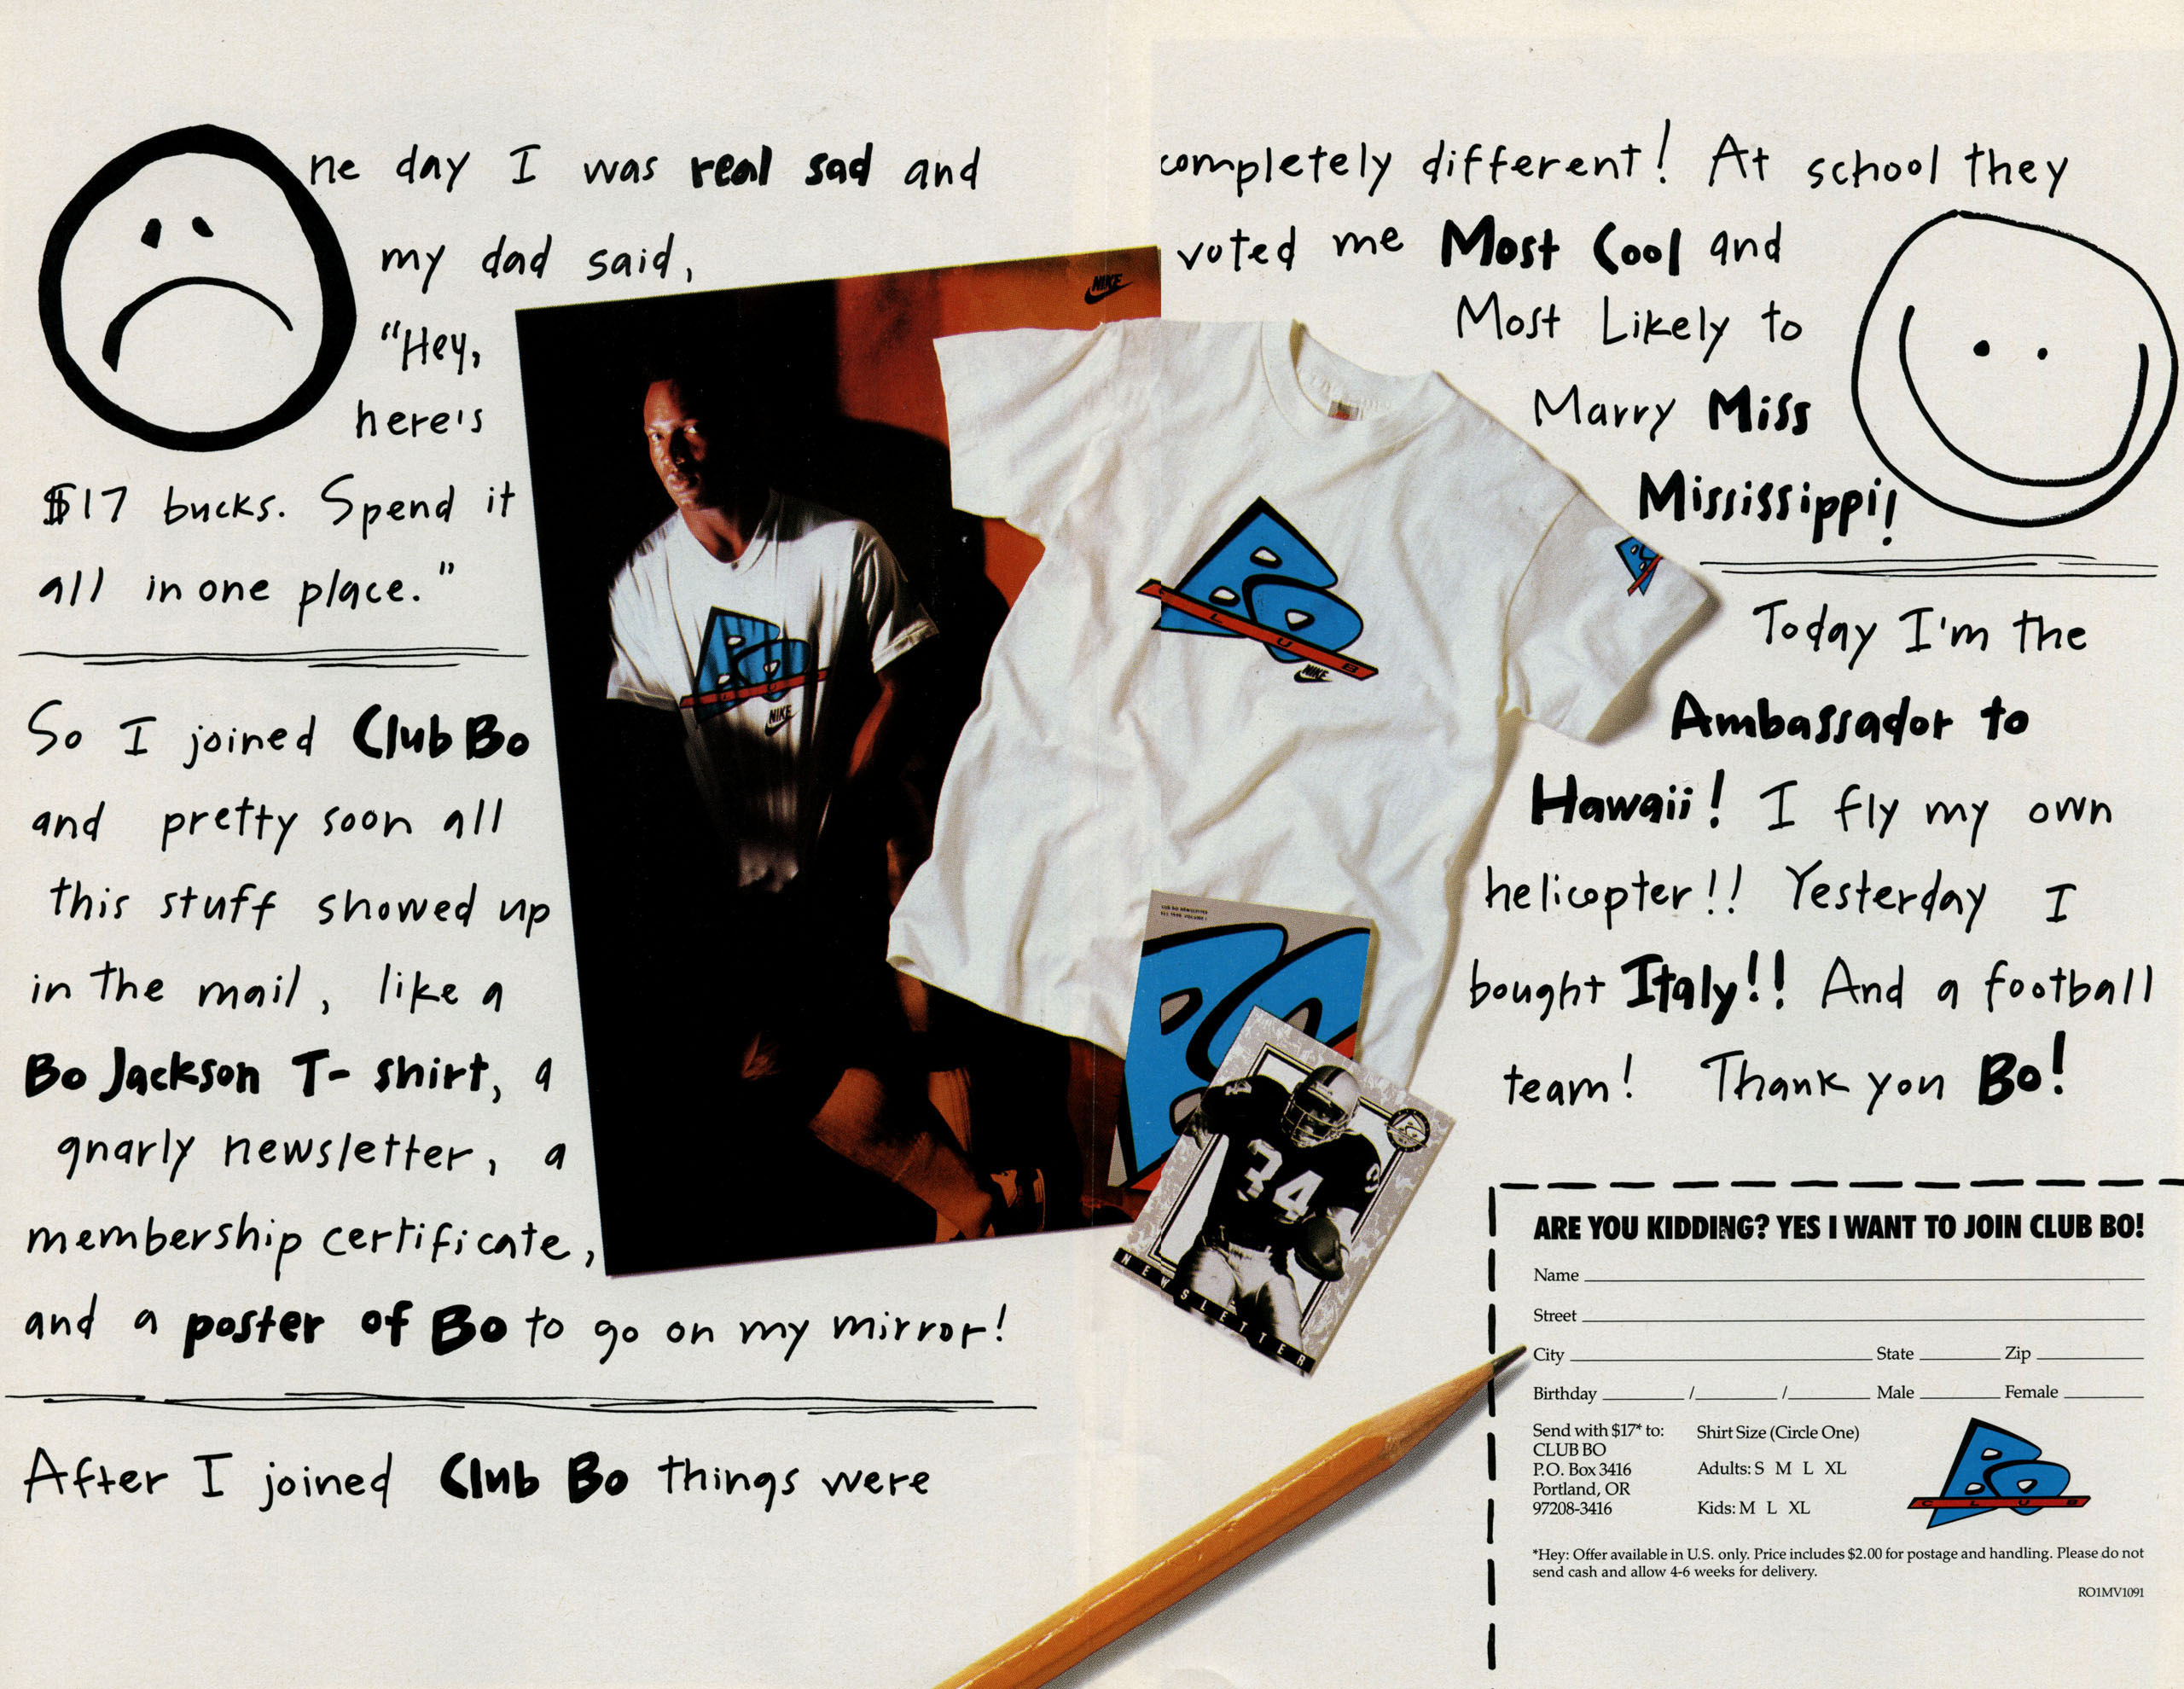 One day I was real sad and
my dad said,
"Hey,
here's
$17 bucks. Spend it
all in one place."
So I joined Club Bo
and pretty soon all
this stuff showed up
in the mail, like a
Bo Jackson T-shirt, a
gnarly newsletter, a
membership certificate,
and a poster of Bo to go on my mirror!
After I joined Club Bo things were
NIKE
BO
CLUB
NIKE
BO
CLUB
NIKE
BO
34
NEWSLETTER
completely different! At school they
voted me Most Cool and
Most Likely to
Marry Miss
Mississippi!
Today I'm the
Ambassador to
Hawaii! I fly my own
helicopter!! Yesterday I
bought Italy!! And a football
team! Thank you Bo!
ARE YOU KIDDING? YES I WANT TO JOIN CLUB BO!
Name
Street
City State Zip
Birthday / / Male Female
Send with $17* to:
CLUB BO
P.O. Box 3416
Portland, OR
97208-3416
Shirt Size (Circle One)
Adults: S M L XL
Kids: M L XL
BO
CLUB
*Hey: Offer available in U.S. only. Price includes $2.00 for postage and handling. Please do not
send cash and allow 4-6 weeks for delivery.
RO1MV1091